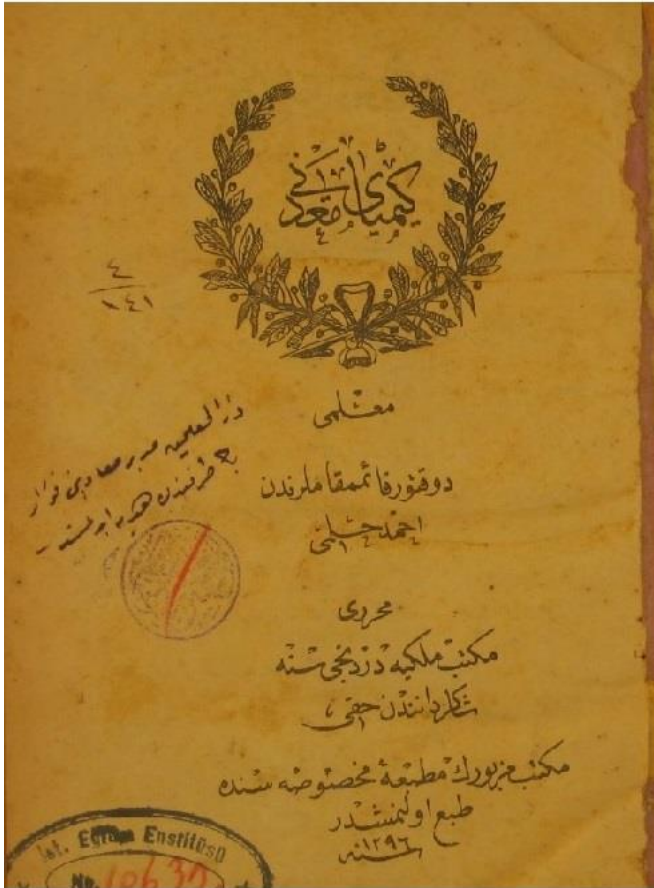 كيمياى معدنى
٤
١٤١
معلمى
دوقتور قائممقاملرندن
احمد حلمى
دار المعلمين
طرفندن هديه
محررى
مكتب ملكيه دردنجى سنه
شاكرداندن حقى
مكتب مزبورك مطبعۀ مخصوصه سنده
طبع اولنمشدر
سنه ١٢٩٦
İst. Eğitim Enstitüsü
No. 10635